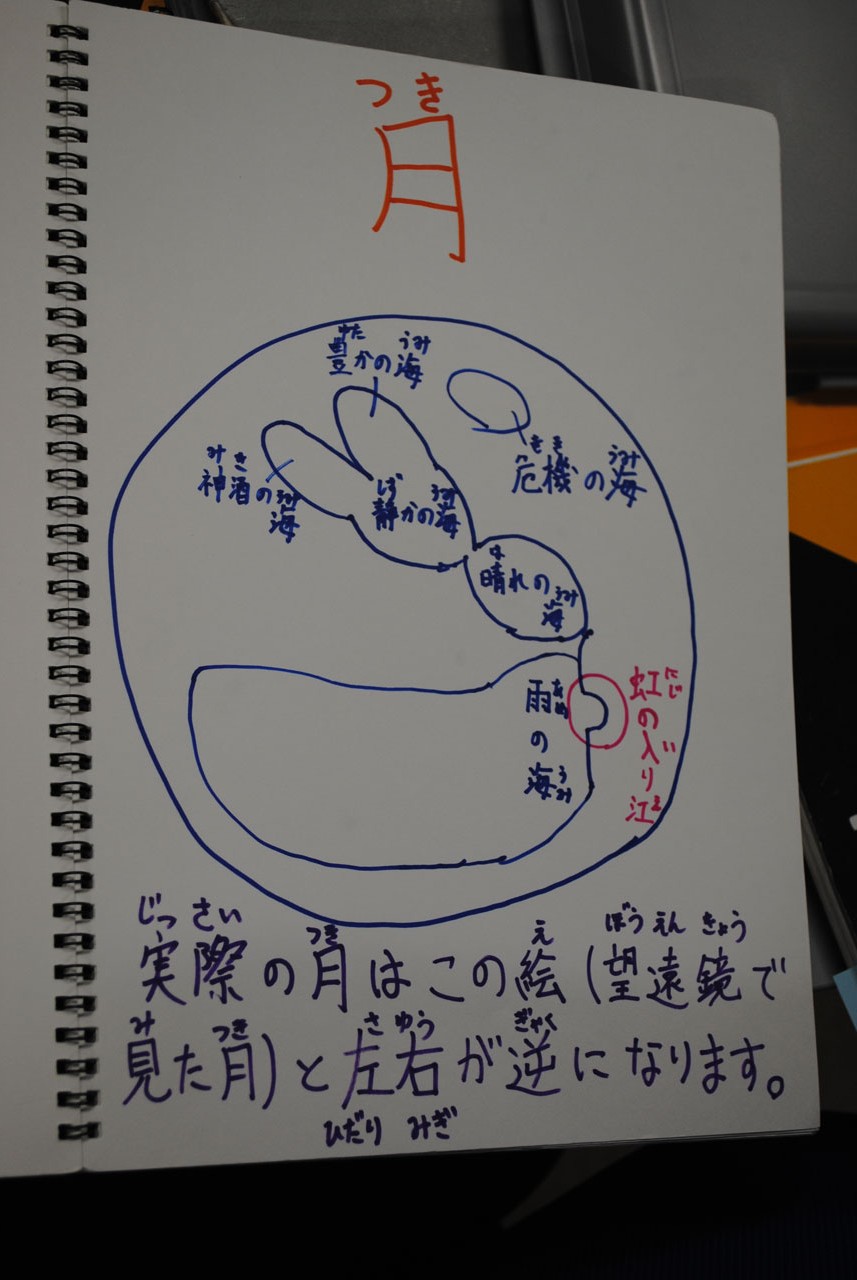 つき
月
ゆた うみ
豊かの海
みき うみ
神酒の海
しず うみ
静かの海
きき うみ
危機の海
は うみ
晴れの海
あめ うみ
雨の海
にじ い え
虹の入り江
じっさい つき え ぼうえんきょう
実際の月はこの絵(望遠鏡で
み つき さゆう ぎゃく
見た月)と左右が逆になります。
ひだり みぎ